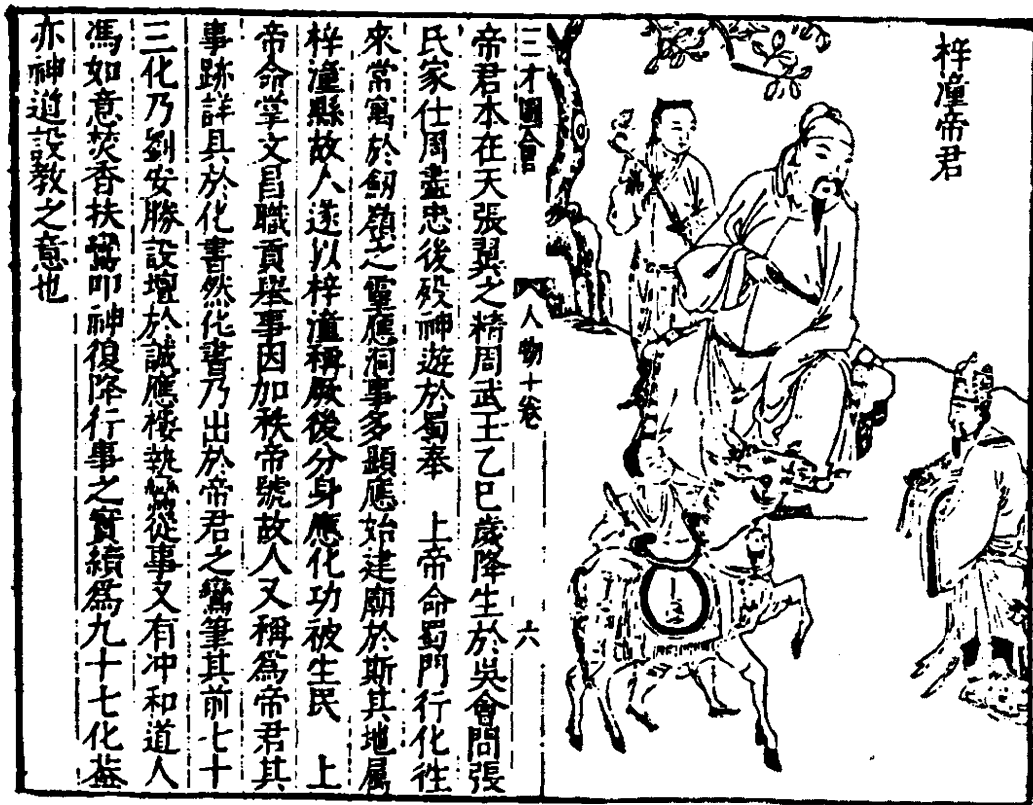 梓潼帝君
三才圖會 人物十卷 六
帝君本在天張翼之精周武王乙巳歲降生於吳會間張
氏家仕周盡忠後歿神遊於蜀奉 上帝命蜀門行化往
來常寓於劒嶺之靈應洞事多顯應始建廟於斯其地属
梓潼縣故人遂以梓潼稱厥後分身應化功被生民 上
帝命掌文昌職貢舉事因加秩帝號故人又稱爲帝君其
事跡詳具於化書然化書乃出於帝君之鸞筆其前七十
三化乃劉安勝設壇於誠應樓執鸞從事又有冲和道人
馮如意焚香扶鸞叩神復降行事之實續爲九十七化葢
亦神道設教之意也